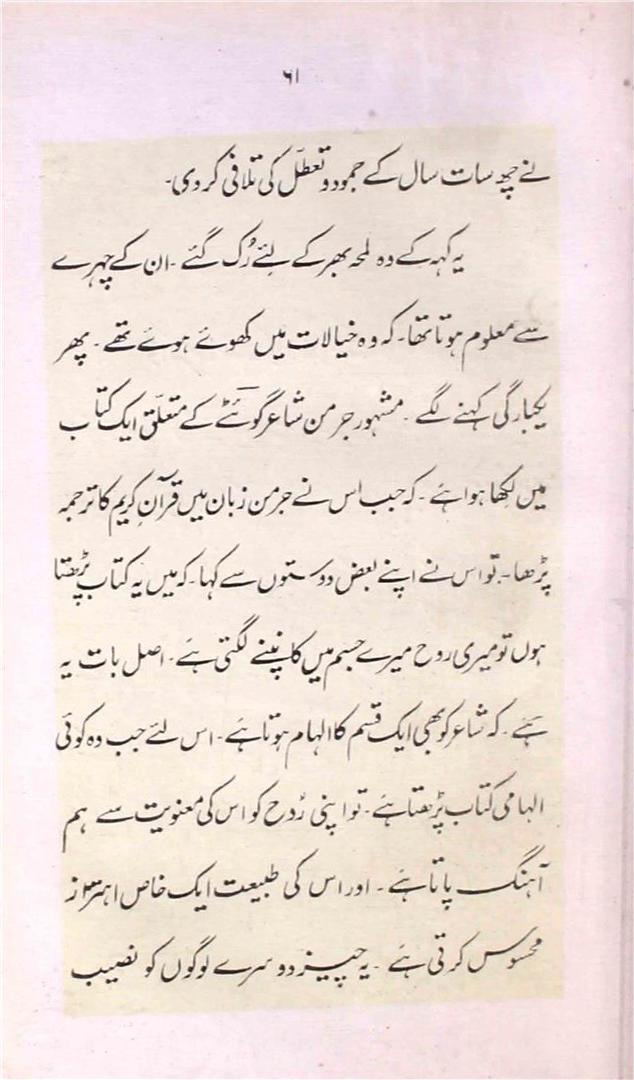 ۶۱
نے چھ سات سال کے جمود و تعطّل کی تلافی کر دی۔
یہ کہہ کے وہ لمحہ بھر کے لئے رُک گئے۔ ان کے چہرے
سے معلوم ہوتا تھا۔ کہ وہ خیالات میں کھوئے ہوئے تھے۔ پھر
یکبارگی کہنے لگے۔ مشہور جرمن شاعر گوئٹے کے متعلّق ایک کتاب
میں لکھا ہوا ہے۔ کہ جب اس نے جرمن زبان میں قرآنِ کریم کا ترجمہ
پڑھا۔ تو اس نے اپنے بعض دوستوں سے کہا۔ کہ میں یہ کتاب پڑھتا
ہوں تو میری روح میرے جسم میں کانپنے لگتی ہے۔ اصل بات یہ
ہے۔ کہ شاعر کو بھی ایک قسم کا الہام ہوتا ہے۔ اس لئے جب وہ کوئی
الہامی کتاب پڑھتا ہے۔ تو اپنی رُوح کو اس کی معنویت سے ہم
آہنگ پاتا ہے۔ اور اس کی طبیعت ایک خاص اہتزاز
محسوس کرتی ہے۔ یہ چیز دوسرے لوگوں کو نصیب